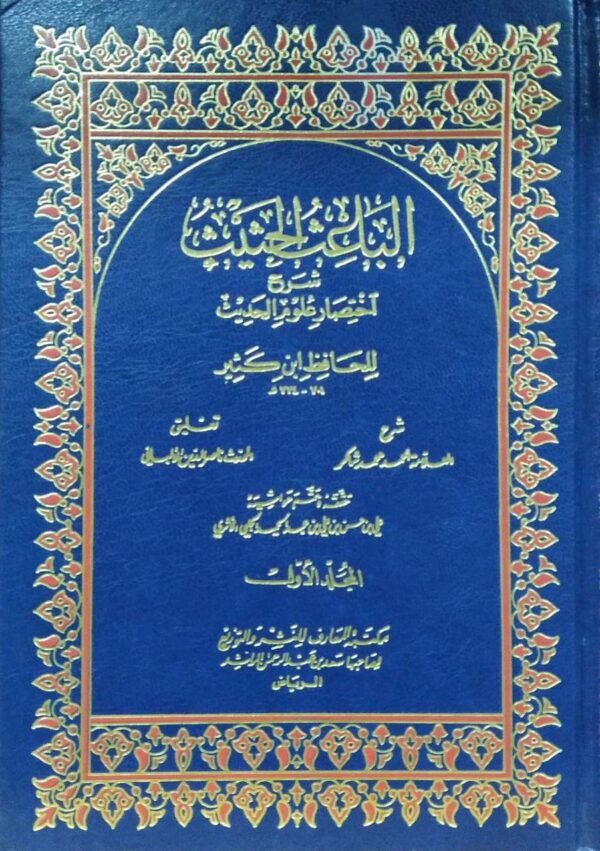 الباعث الحثيث
شرح
اختصار علوم الحديث
للحافظ ابن كثير
٧٠١ - ٧٧٤ هـ
شرح
العلامة أحمد محمد شاكر
تعليق
المحدث ناصر الدين الألباني
حققه وتمم حواشيه
علي بن حسن بن علي بن عبد الحميد الحلبي الأثري
المجلد الأول
مكتبة المعارف للنشر والتوزيع
لصاحبها سعد بن عبد الرحمن الراشد
الرياض